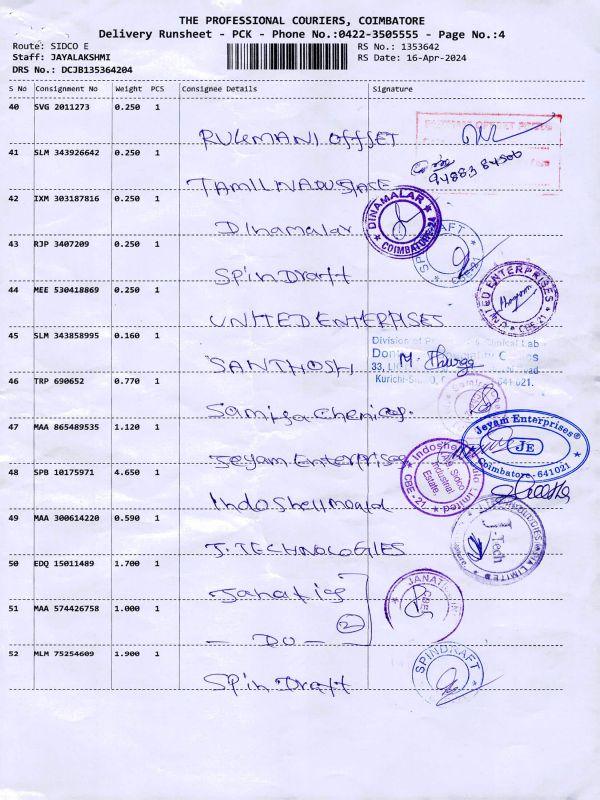 THE PROFESSIONAL COURIERS, COIMBATORE
Delivery Runsheet - PCK - Phone No.:0422-3505555 - Page No.:4
Route: SIDCO E
RS No.: 1353642
Staff: JAYALAKSHMI
RS Date: 16-Apr-2024
DRS No.: DCJB135364204
S No Consignment No Weight PCS Consignee Details Signature
40 SVG 2011273 0.250 1
RUKMANI OFFSET
41 SLM 343926642 0.250 1
94883 84506
TAMILNADU SPACE
42 IXM 303187816 0.250 1
Dinamalar
DINAMALAR
COIMBATORE-24
43 RJP 3407209 0.250 1
SpinDraft
SPINDRAFT
CBE-21
44 MEE 530418869 0.250 1
UNITED ENTERPRISES
ENTERPRISES
CBE-21
45 SLM 343858995 0.160 1
SANTHOSH
Division of
Clinical Lab
M. Thurga
Kurichi-
641 021.
46 TRP 690652 0.770 1
Samiya Chemicals
47 MAA 865489535 1.120 1
Jeyam Enterprises
Jeyam Enterprises
JE
Coimbatore-641021
48 SPB 10175971 4.650 1
Indoshell
Sidco
Industrial
Estate,
Limited
CBE-21
IndoShellmould
49 MAA 300614220 0.590 1
J. TECHNOLOGIES
-Tech
LIMITED
50 EDQ 15011489 1.700 1
Janatics
JANAT
CBE
51 MAA 574426758 1.000 1
2
- Do -
52 MLM 75254609 1.900 1
SPINDRAFT
Spin Draft